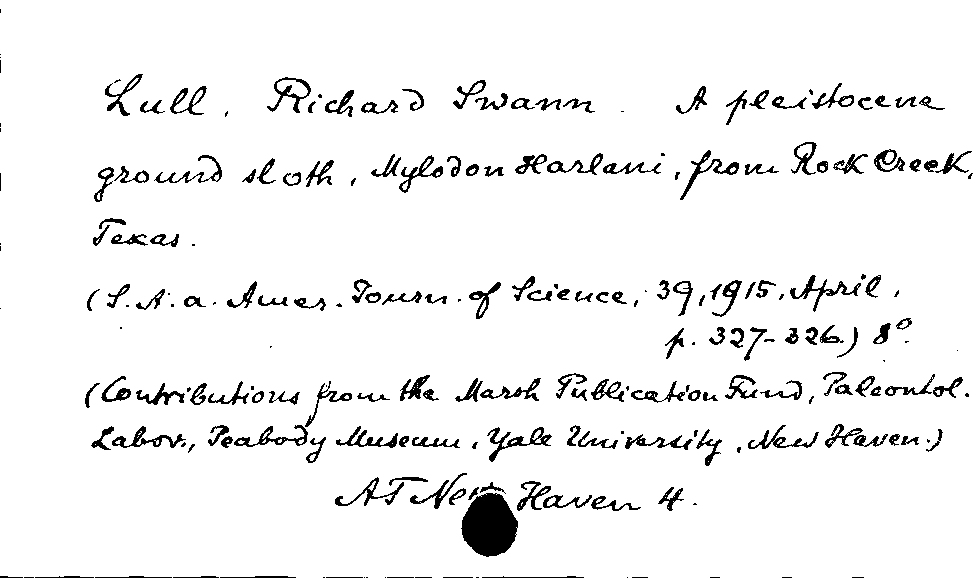 Lull, Richard Swann. A pleistocene
ground sloth, Mylodon Harlani, from Rock Creek,
Texas.
(S.A.a. Amer. Journ. of Science, 39, 1915, April,
p. 327-326.) 8°.
(Contributions from the Marsh Publication Fund, Paleontol.
Labor., Peabody Museum, Yale University, New Haven.)
AT New Haven 4.